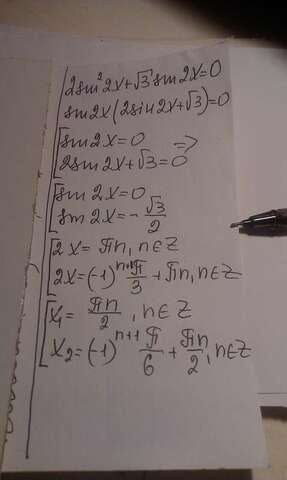 2sin²2x+√3 sin2x=0
sin2x(2sin2x+√3)=0
[sin2x=0
[2sin2x+√3=0 =>
[sin2x=0
[sin2x=-√3/2
[2x=πn, n∈Z
[2x=(-1)ⁿ⁺¹ π/3+πn, n∈Z
[x₁=πn/2, n∈Z
[x₂=(-1)ⁿ⁺¹ π/6+πn/2, n∈Z